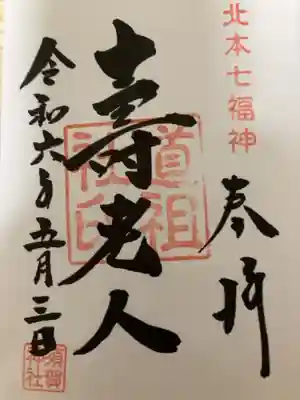 北本七福神
奉拝
壽老人
道祖社印
令和六年五月三日
須賀神社